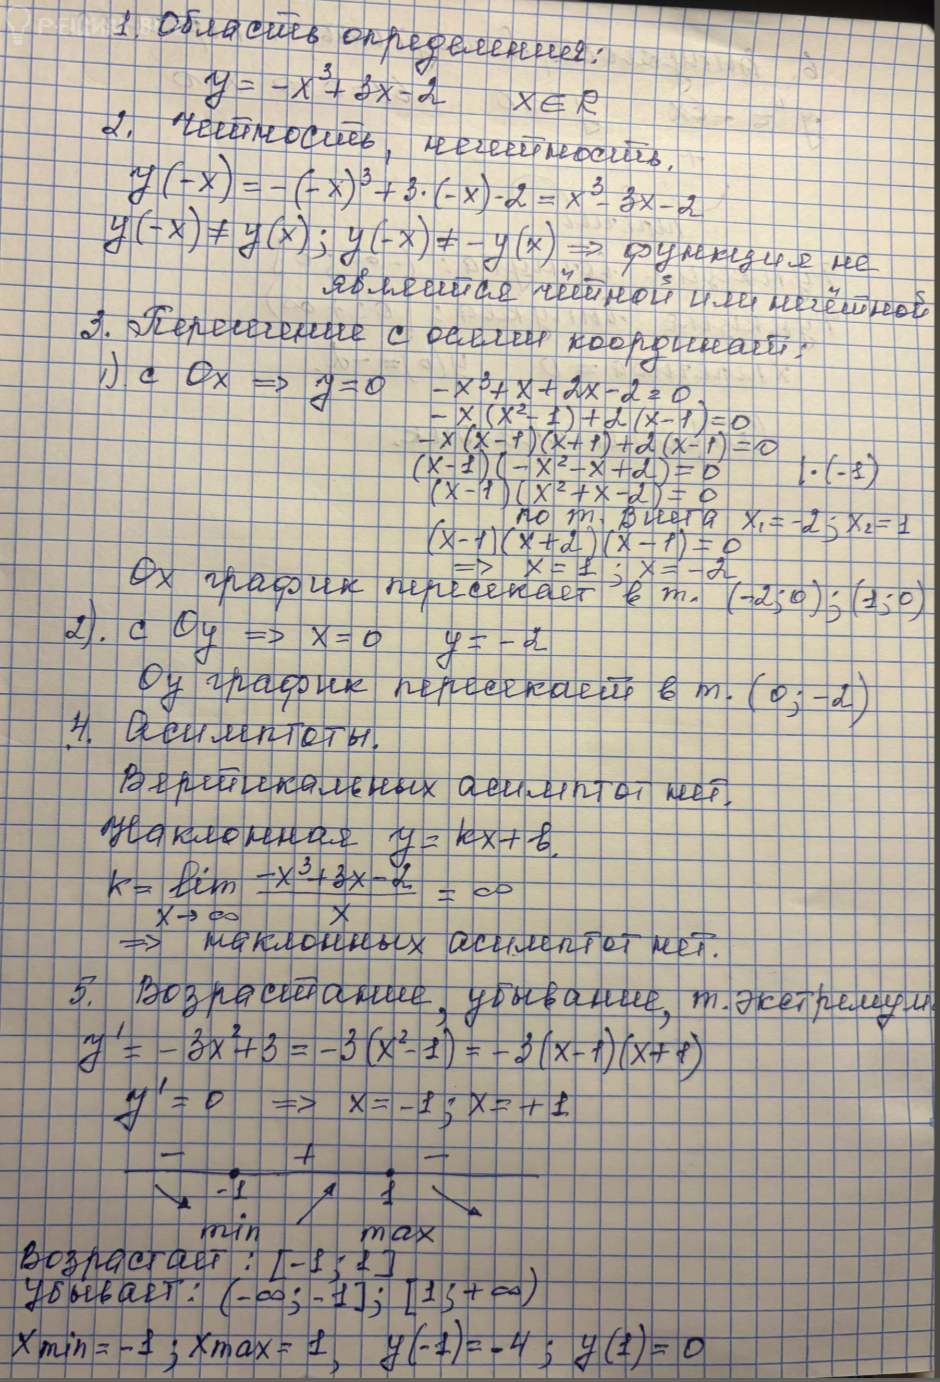 1. Область определения:
y = -x³ + 3x - 2   x ∈ R
2. Чётность, нечётность.
y(-x) = -(-x)³ + 3·(-x) - 2 = x³ - 3x - 2
y(-x) ≠ y(x); y(-x) ≠ -y(x) => функция не
является чётной или нечётной
3. Пересечение с осями координат:
1) с Ox => y = 0   -x³ + x + 2x - 2 = 0
-x(x² - 1) + 2(x - 1) = 0
-x(x-1)(x+1) + 2(x-1) = 0
(x-1)(-x² - x + 2) = 0   |·(-1)
(x-1)(x² + x - 2) = 0
по т. Виета x₁ = -2; x₂ = 1
(x-1)(x+2)(x-1) = 0
=> x = 1; x = -2
Ox график пересекает в т. (-2; 0); (1; 0)
2). с Oy => x = 0   y = -2
Oy график пересекает в т. (0; -2)
4. Асимптоты.
Вертикальных асимптот нет.
Наклонная y = kx + b.
k = lim x→∞ (-x³ + 3x - 2)/x = ∞
=> наклонных асимптот нет.
5. Возрастание, убывание, т. экстремум
y' = -3x² + 3 = -3(x² - 1) = -3(x-1)(x+1)
y' = 0 => x = -1; x = +1
- + -
-1 1
min max
Возрастает: [-1; 1]
Убывает: (-∞; -1]; [1; +∞)
xmin = -1; xmax = 1, y(-1) = -4; y(1) = 0